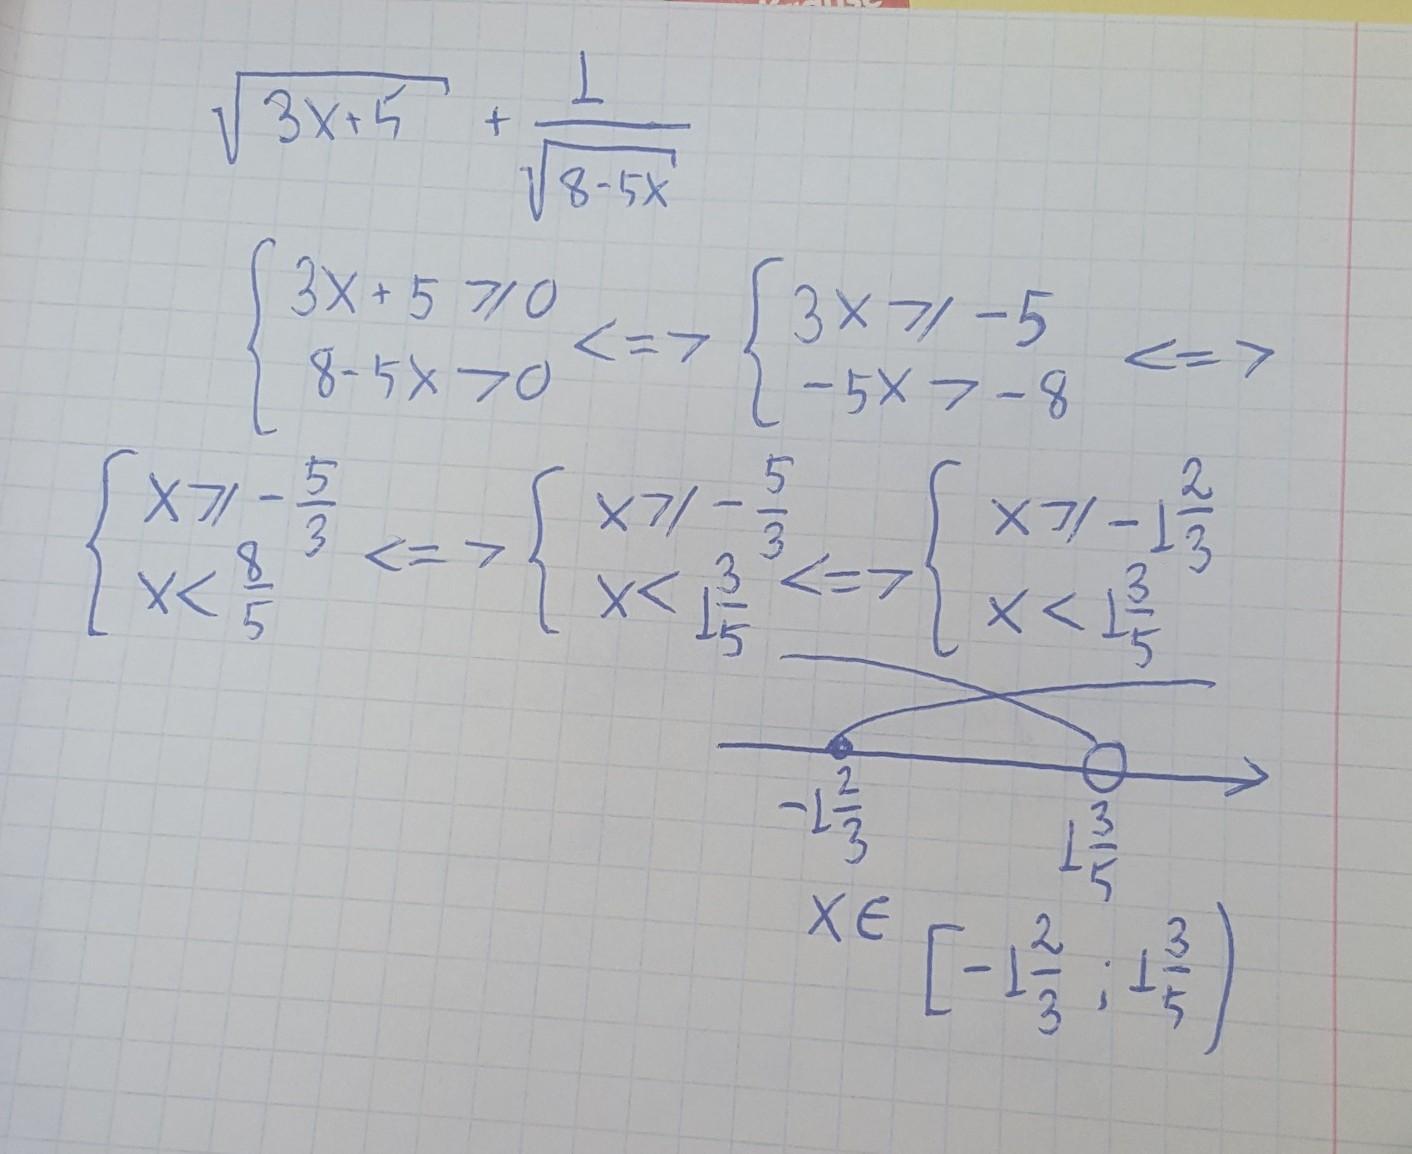 √(3x+5) + 1/√(8-5x)
{ 3x+5 ⩾ 0 ; 8-5x > 0 <=> { 3x ⩾ -5 ; -5x > -8 <=>
{ x ⩾ -5/3 ; x < 8/5 <=> { x ⩾ -5/3 ; x < 1 3/5 <=> { x ⩾ -1 2/3 ; x < 1 3/5
-1 2/3 1 3/5
x ∈ [-1 2/3 ; 1 3/5)